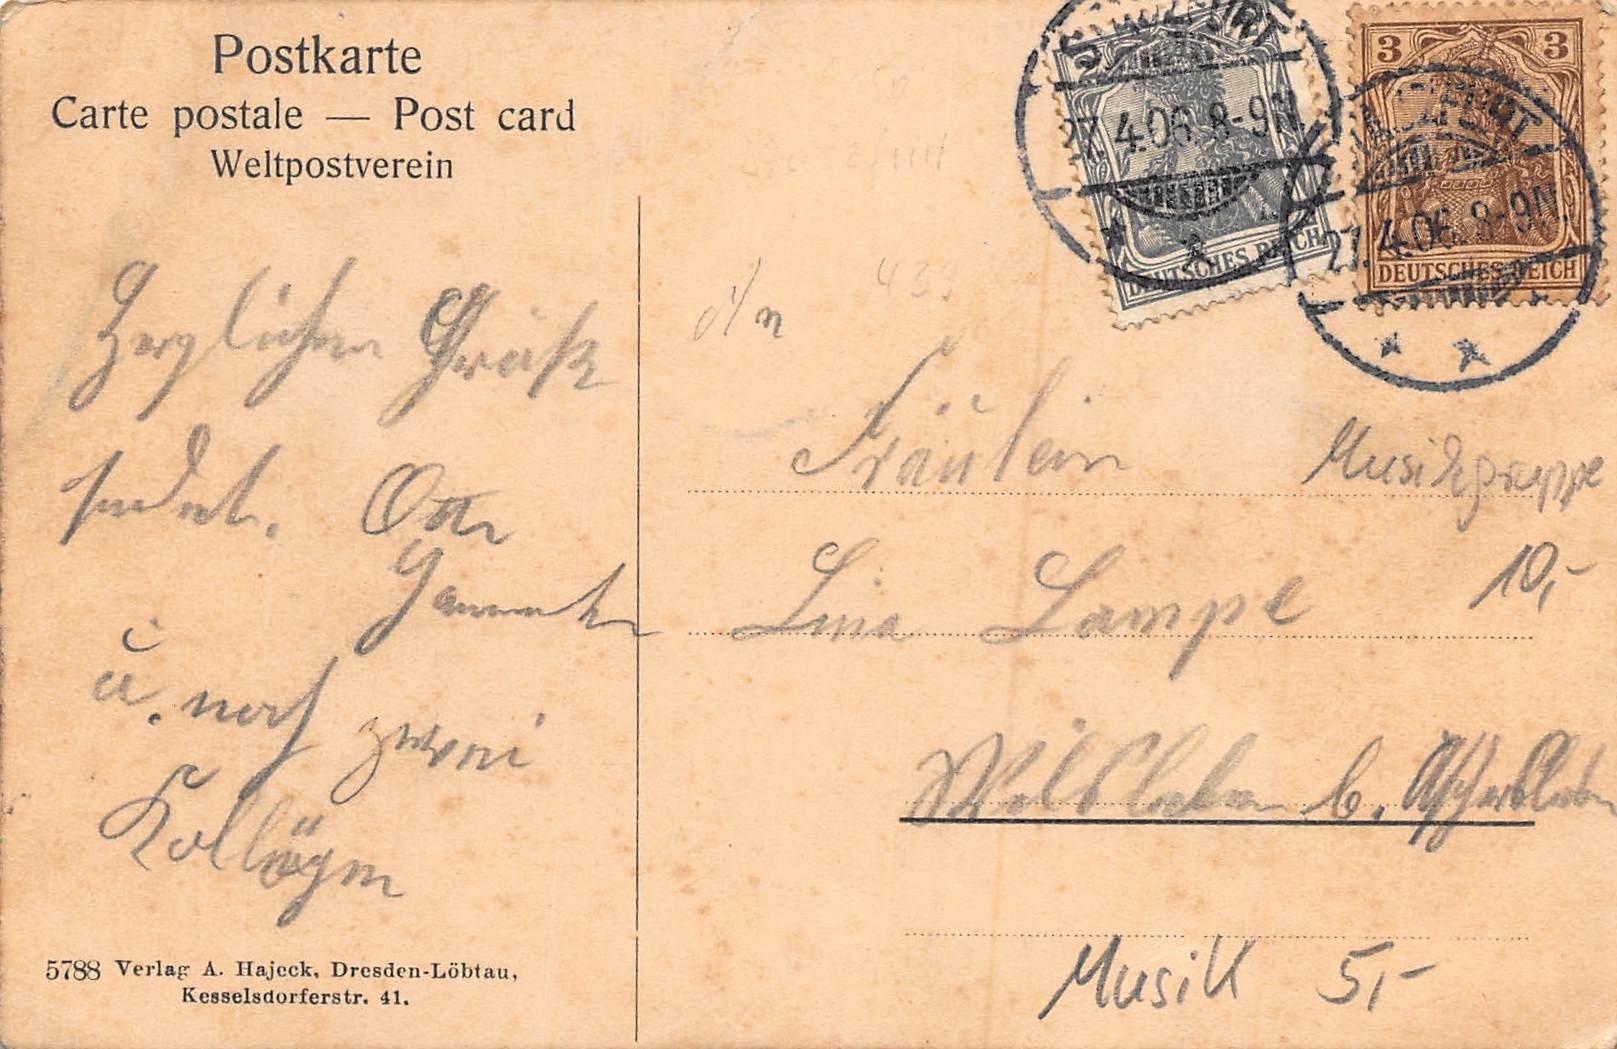 Postkarte
Carte postale — Post card
Weltpostverein
27.4.06. 8-9N.
3 3
27.4.06. 8-9N.
DEUTSCHES REICH
DEUTSCHES REICH
d/n
433
Herzlichen Grüße
sendet. Otto
u. noch zwei
Kollögen
Fräulein
Musikgruppe
10,-
Lina Lampe
Wilsleben b. Aschersleben
Musik 5,-
5788 Verlag A. Hajeck, Dresden-Löbtau,
Kesselsdorferstr. 41.